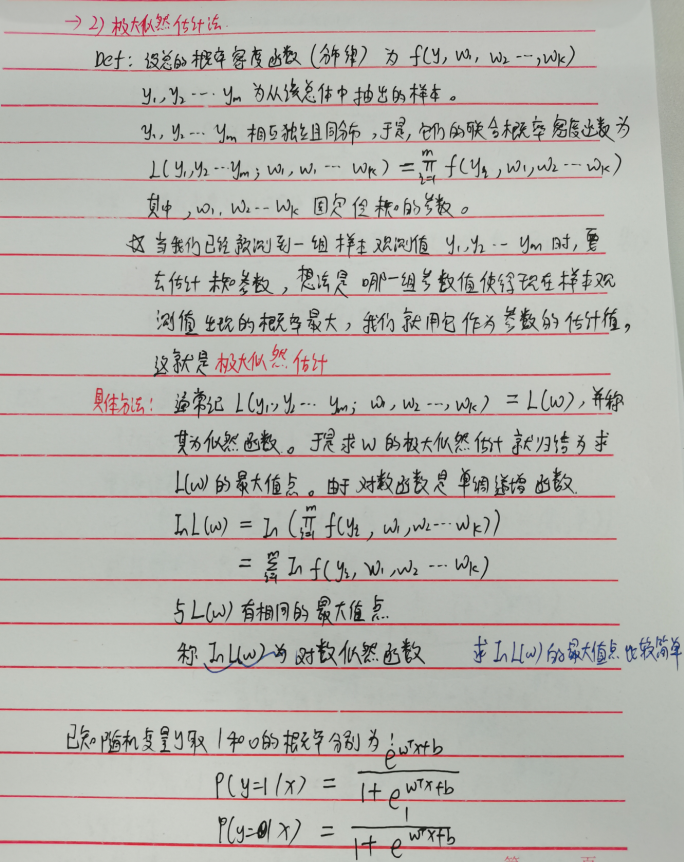 → 2) 极大似然估计法
Def: 设总的概率密度函数(分布律) 为 f(y, w₁, w₂ …, wₖ)
y₁, y₂ … yₘ 为从该总体中抽出的样本。
y₁, y₂ … yₘ 相互独立且同分布,于是,它们的联合概率密度函数为
L(y₁,y₂…yₘ; w₁, w₁ … wₖ) = ∏ᵢ₌₁ᵐ f(yᵢ, w₁,w₂…wₖ)
其中, w₁, w₂… wₖ 固定但未知的参数。
☆ 当我们已经观测到一组样本观测值 y₁,y₂ … yₘ 时, 要
去估计未知参数, 想法是 哪一组参数值使得现在样本观
测值出现的概率最大, 我们就用它作为参数的估计值,
这就是极大似然估计
具体方法: 通常记 L(y₁,y₂… yₘ; w₁, w₂ …, wₖ) = L(w), 并称
其为似然函数。于是求 w 的极大似然估计就归结为求
L(w) 的最大值点。由于对数函数是单调递增函数
In L(w) = In (∏ᵢ₌₁ᵐ f(yᵢ, w₁,w₂…wₖ))
= ∑ᵢ₌₁ᵐ In f(yᵢ, w₁,w₂ … wₖ)
与 L(w) 有相同的最大值点
称 In L(w) 为 对数似然函数 求 In L(w) 的最大值点比较简单
已知随机变量y取 1 和 0 的概率分别为:
P(y=1|x) = e^(wᵀx+b) / (1 + e^(wᵀx+b))
P(y=0|x) = 1 / (1 + e^(wᵀx+b))